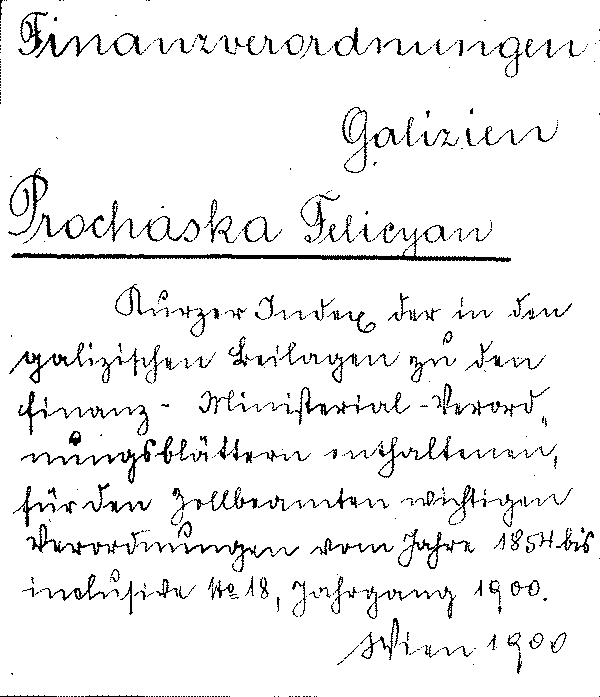 Finanzverordnungen
Galizien
Prochaska Felicyan
Kurzer Index der in den
galizischen Beilagen zu den
Finanz- Ministerial-Verord„
nungsblättern enthaltenen,
für den Zollbeamten wichtigen
Verordnungen vom Jahre 1854 bis
inclusive No 18, Jahrgang 1900.
Wien 1900